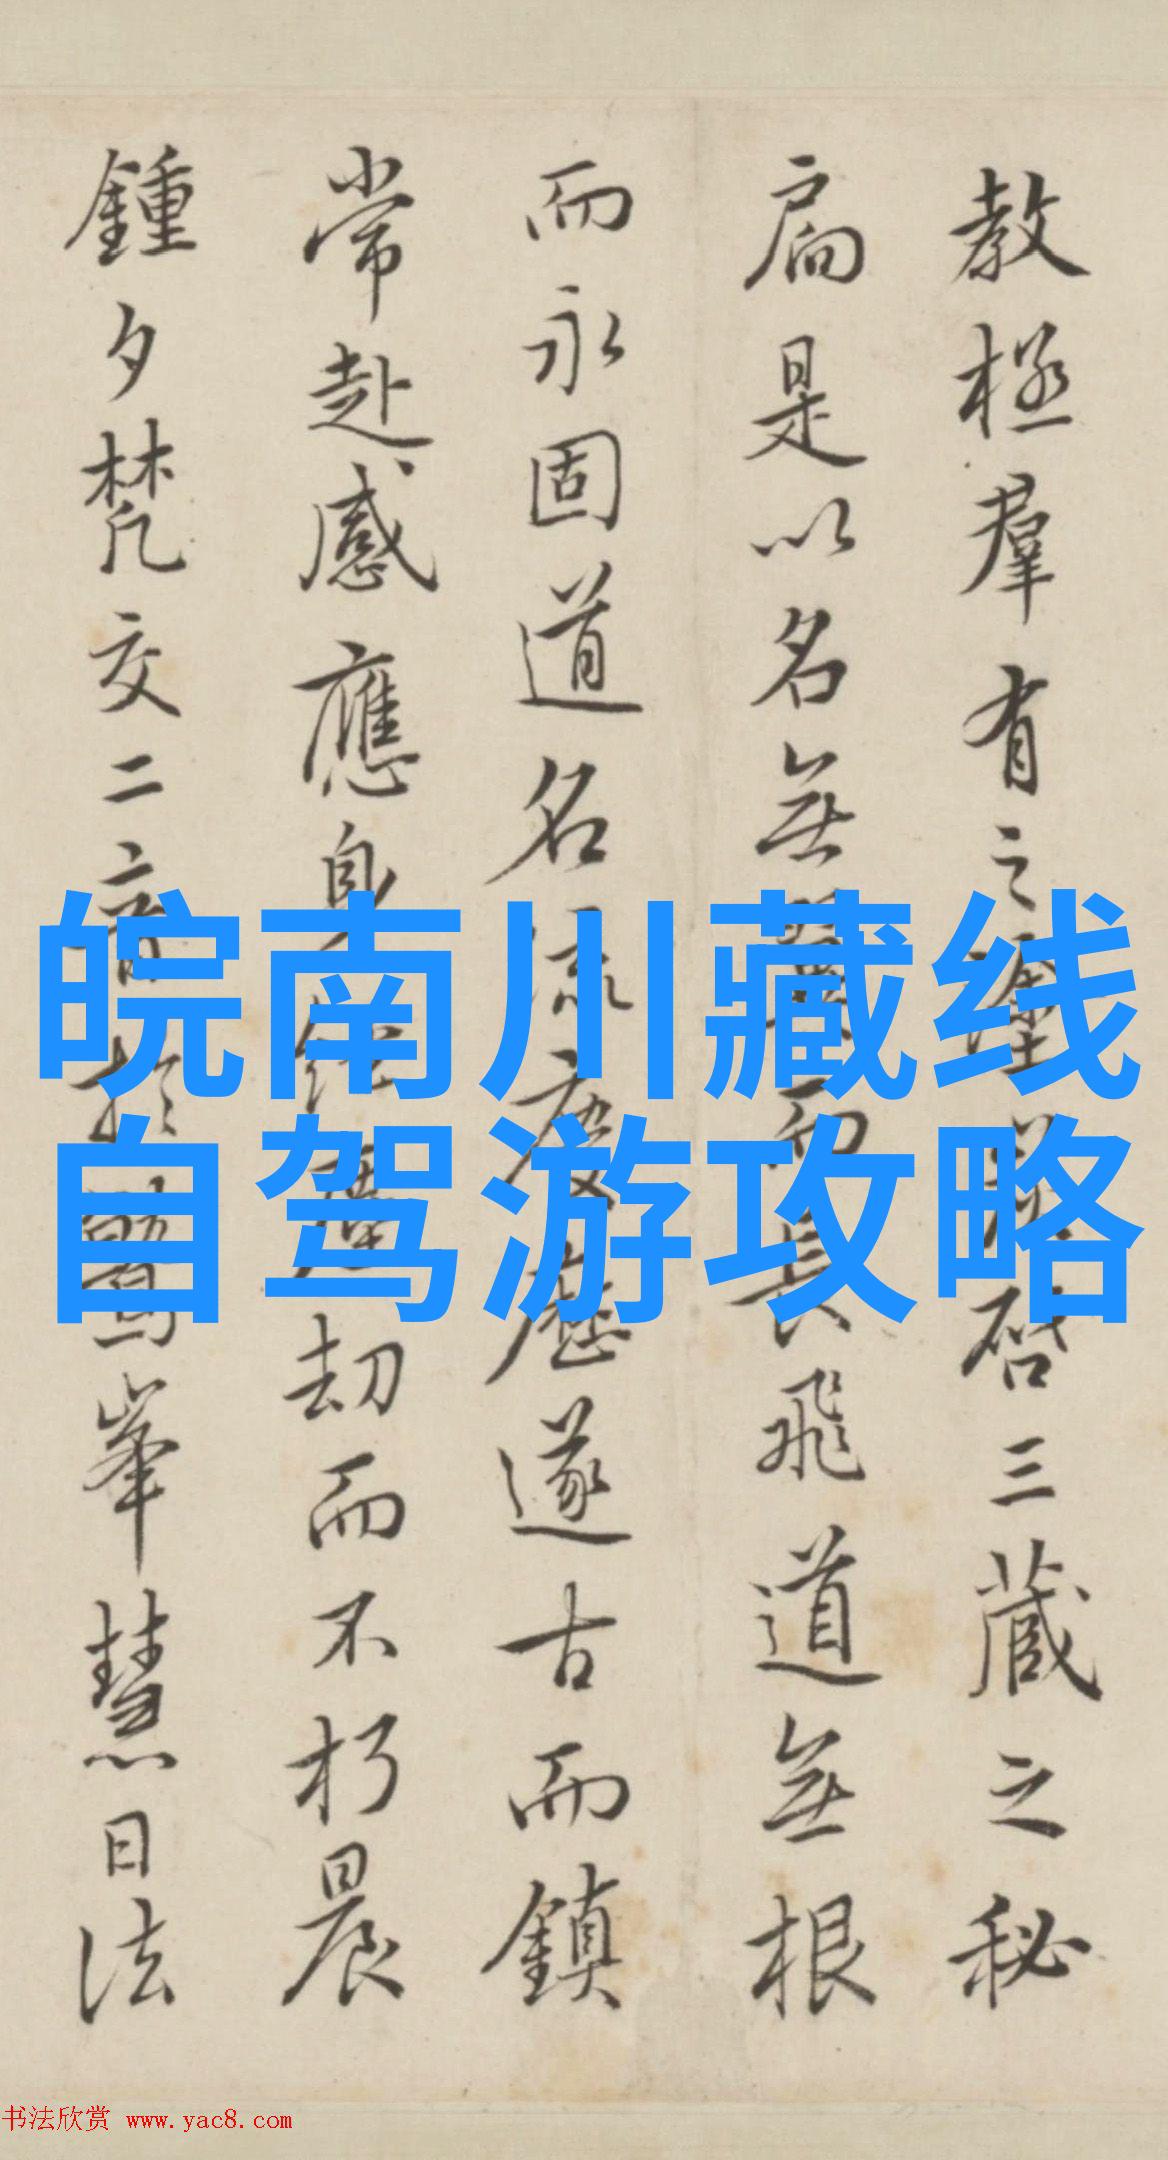 教極羣有之塗啓三藏之秘
扃是以名無翼而長飛道無根
而永固道名流慶歷遂古而鎮
常赴感應身經塵劫而不朽晨
鍾夕梵交二音於鷲峯慧日法
皖南川藏线
自驾游攻略
书法欣赏 www.yac8.com